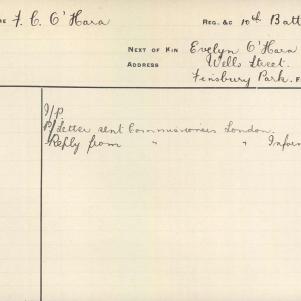 RE F. C. O'Hara REG. &C 10th Batt
NEXT OF KIN Evelyn O'Hara
ADDRESS Wells Street.
Finsbury Park.
I/P.
P/Letter sent Commissioners London.
Reply from " " Infor